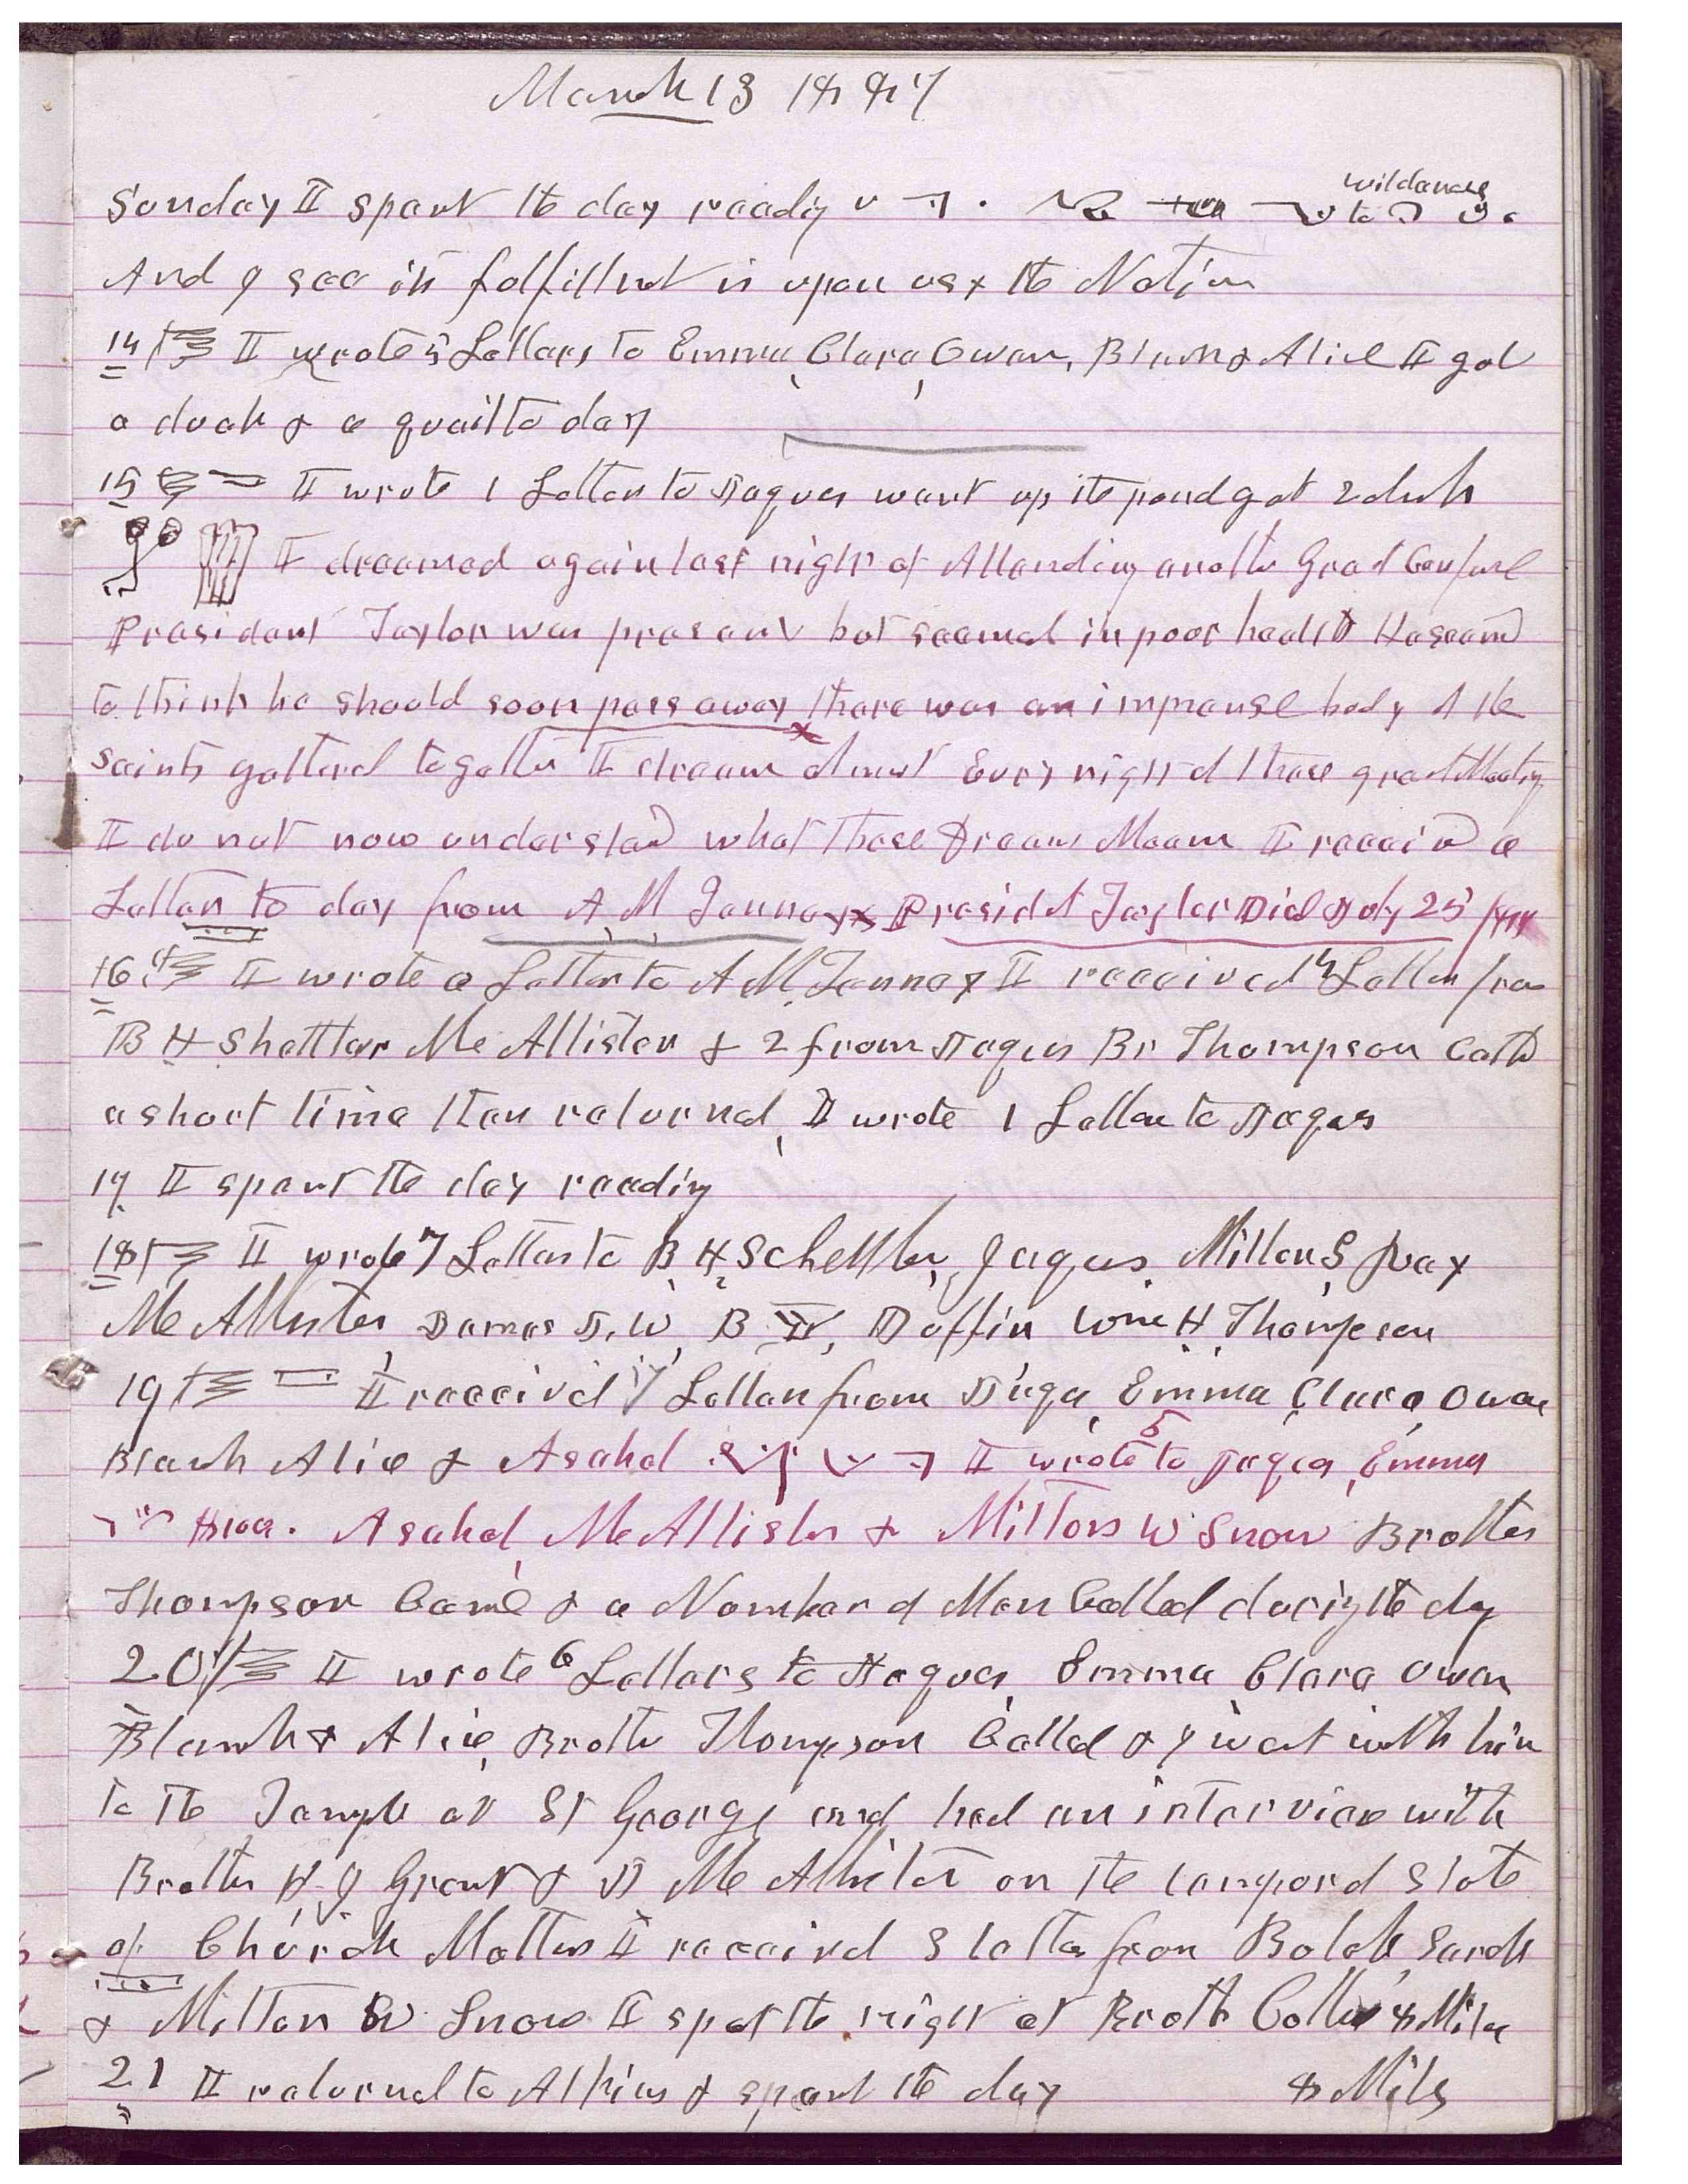 March 13 1887
Sunday I spent the day reading wilderness
And I see its fulfillmt is upon us & the Nation
14 I wrote 5 Letters to Emma, Clara, Owen, Blanch & Alice I got
a duck & a quail to day
15 I wrote 1 Letter to Jaques went up the pond got 2 duck
I dreamed again last night of Attending another Great Confere
President Taylor was present but seemed in poor health He seemd
to think he should soon pass away there was an immense body of the
saints gatherd together I dream almost Every night of these great Meeting
I do not now understand what those dreams Mean I receivd a
Letter to day from A M Tenney x Presidet Taylor Died July 25
16 I wrote a Letter to A M. Tenney I received 4 Letters from
B H Shettler McAllister & 2 from Jaques Br Thompson Calld
a short time then returned, I wrote 1 Letter to Jaques
17 I spent the day reading
18 I wrote 7 Letters to B H Schettler, Jaques, Milton S
McAllister, J, W, Thompson
19 I received 7 Letters from Emma Clara Owen
Blanch Alice & Asahel I wrote 5 to Jaques, Emma
Asahel, McAllister & Milton W Snow Brother
Thompson Came & a Number of Men Called during the day
20 I wrote 6 Letters to Jaques, Emma Clara Owen
Blanch & Alice, Brother Thompson Called & I went with him
to the Temple at St George and had an interview with
Brother H. J Grant & D McAllister on the temporal State
of Church Matters I received 3 letters from Bulah, Sarah
& Milton W Snow I spet the night at Broth 8 Miles
21 I returned to Atkins & spent the day 8 Miles